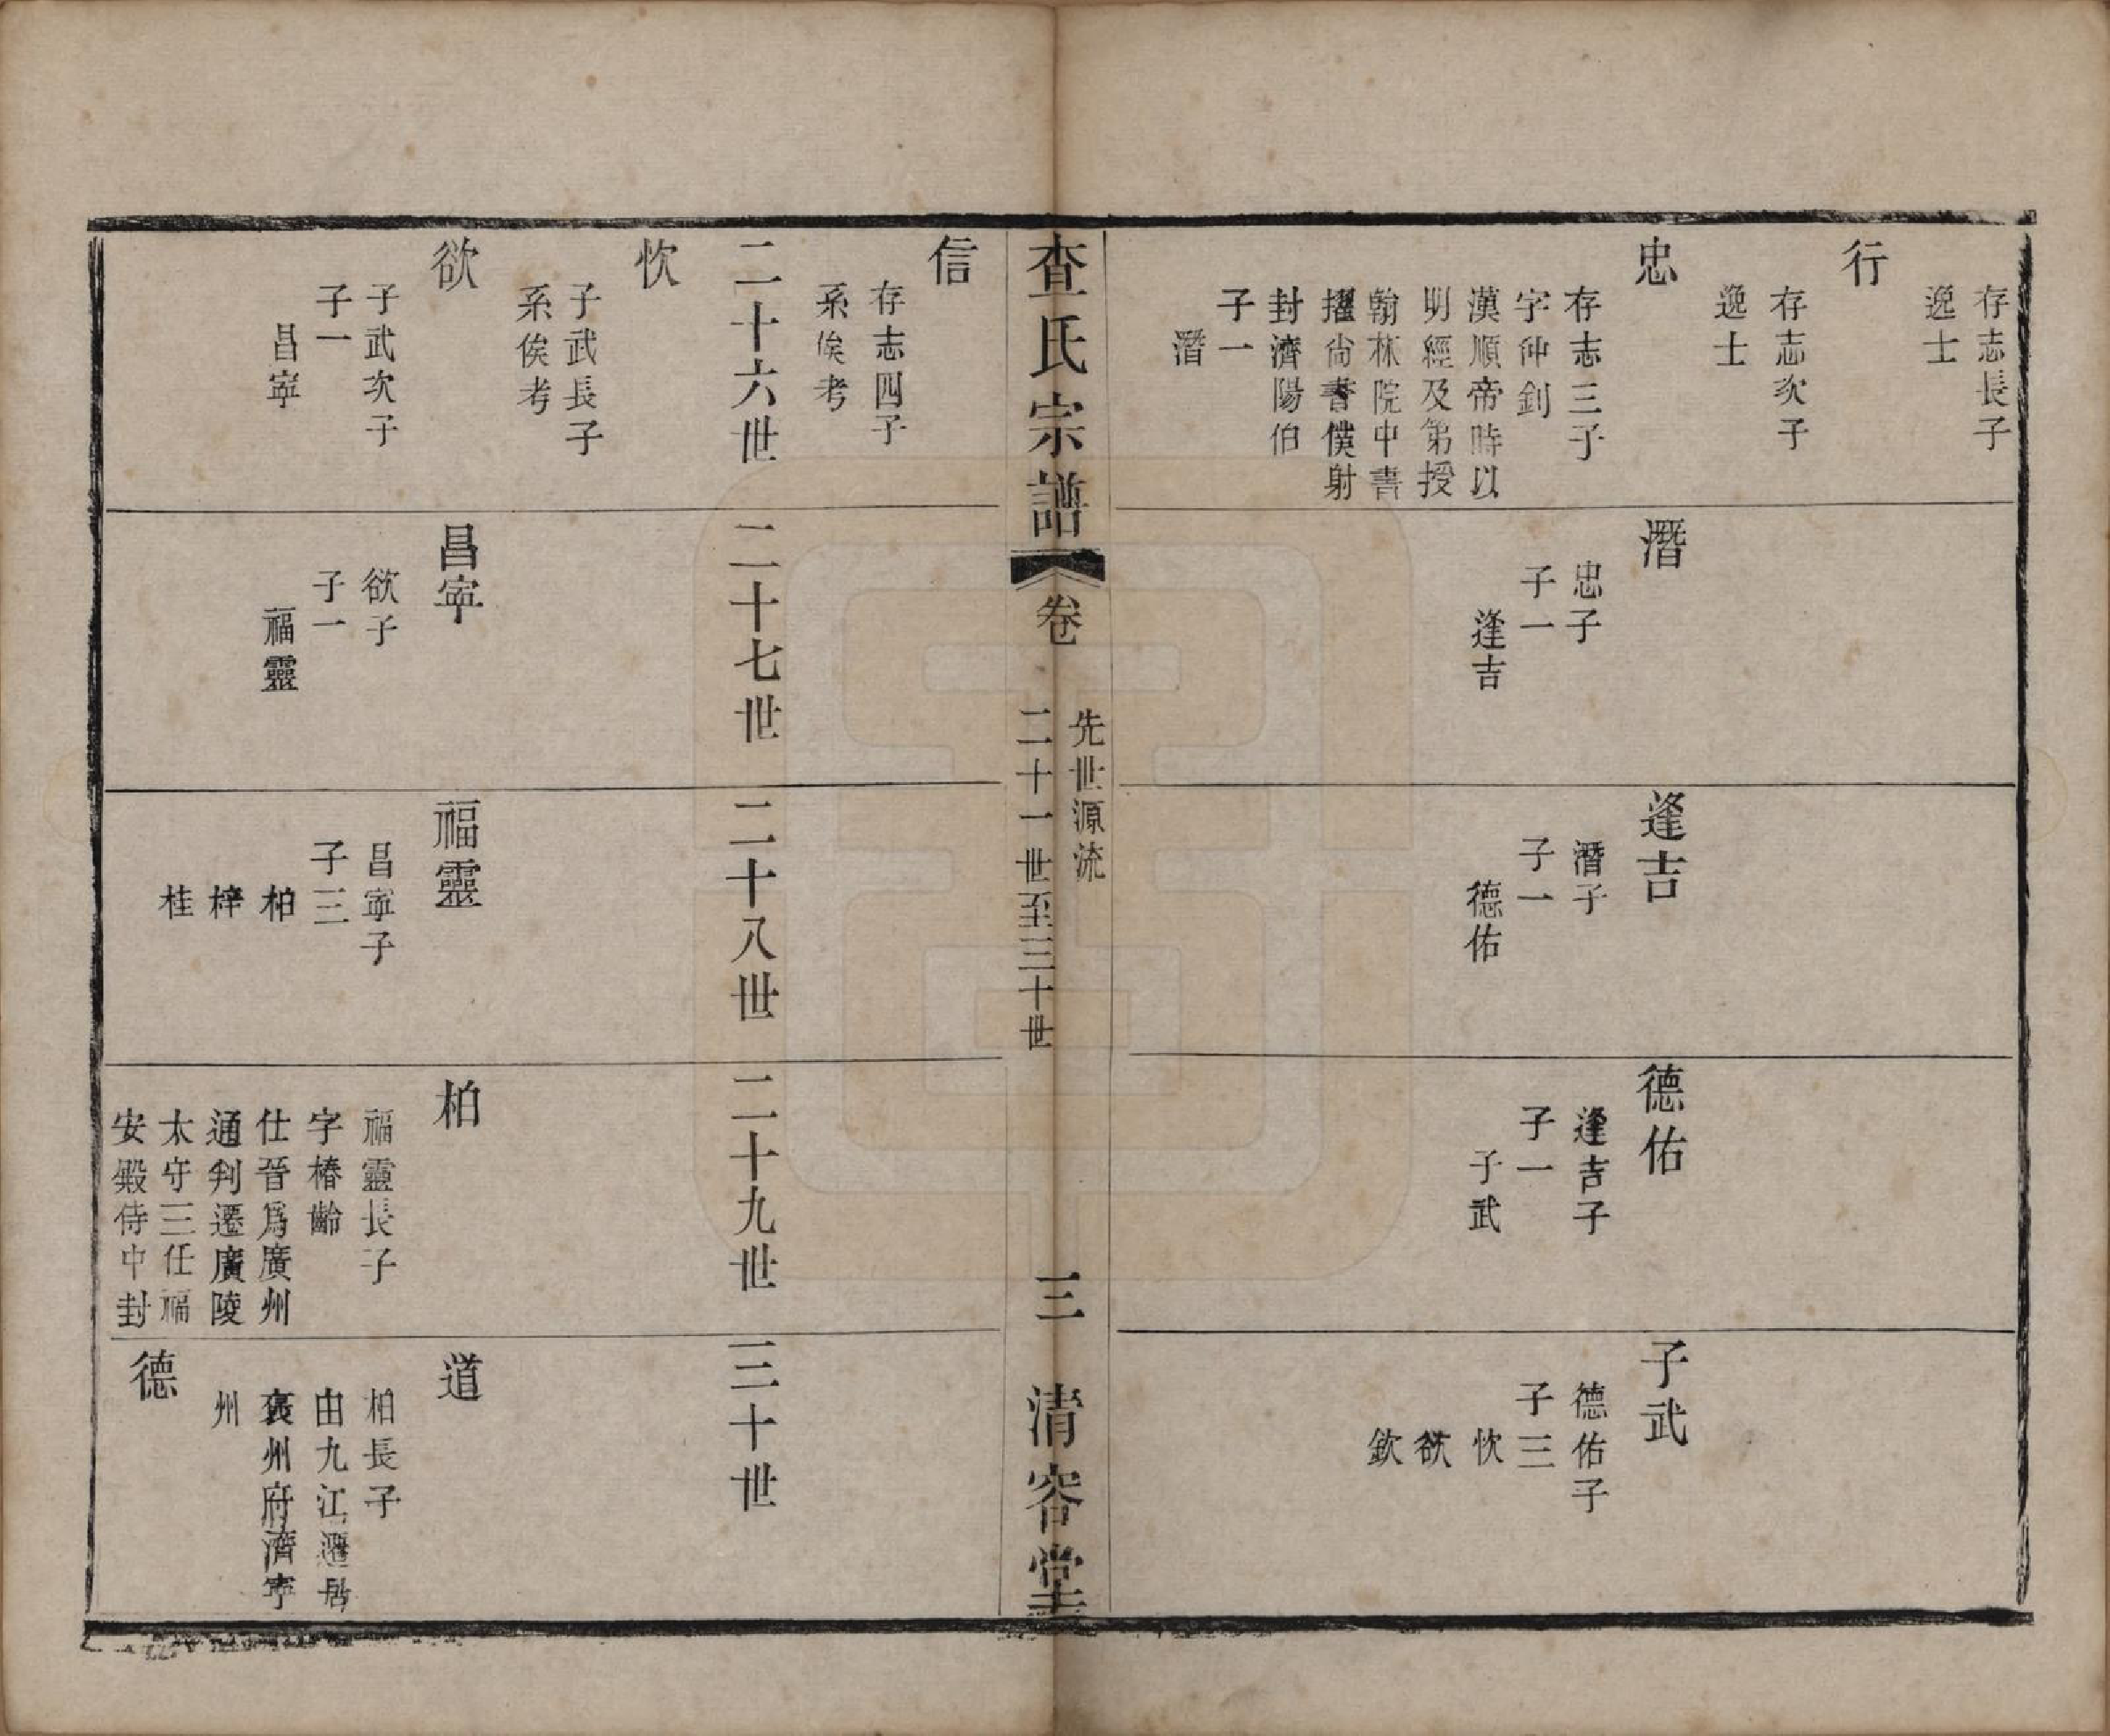 存志長子
逸士
行
存志次子
逸士
忠
存志三子
字仲釗
漢順帝時以
明經及第授
翰林院中書
擢尙書僕射
封濟陽伯
子一
潛
潛
忠子
子一
逢吉
逢吉
潛子
子一
德佑
德佑
逢吉子
子一
子武
子武
德佑子
子三
忺
欲
欽
查氏宗譜
卷
先世源流
二十一世至三十世
三
清容堂
信
存志四子
系俟考
二十六世
忺
子武長子
系俟考
欲
子武次子
子一
昌寧
二十七世
昌寧
欲子
子一
福靈
二十八世
福靈
昌寧子
子三
柏
梓
桂
二十九世
柏
福靈長子
字椿齡
仕晉爲廣州
通判遷廣陵
太守三任福
安殿侍中封
三十世
道
柏長子
由九江遷居
袞州府濟寧
州
德